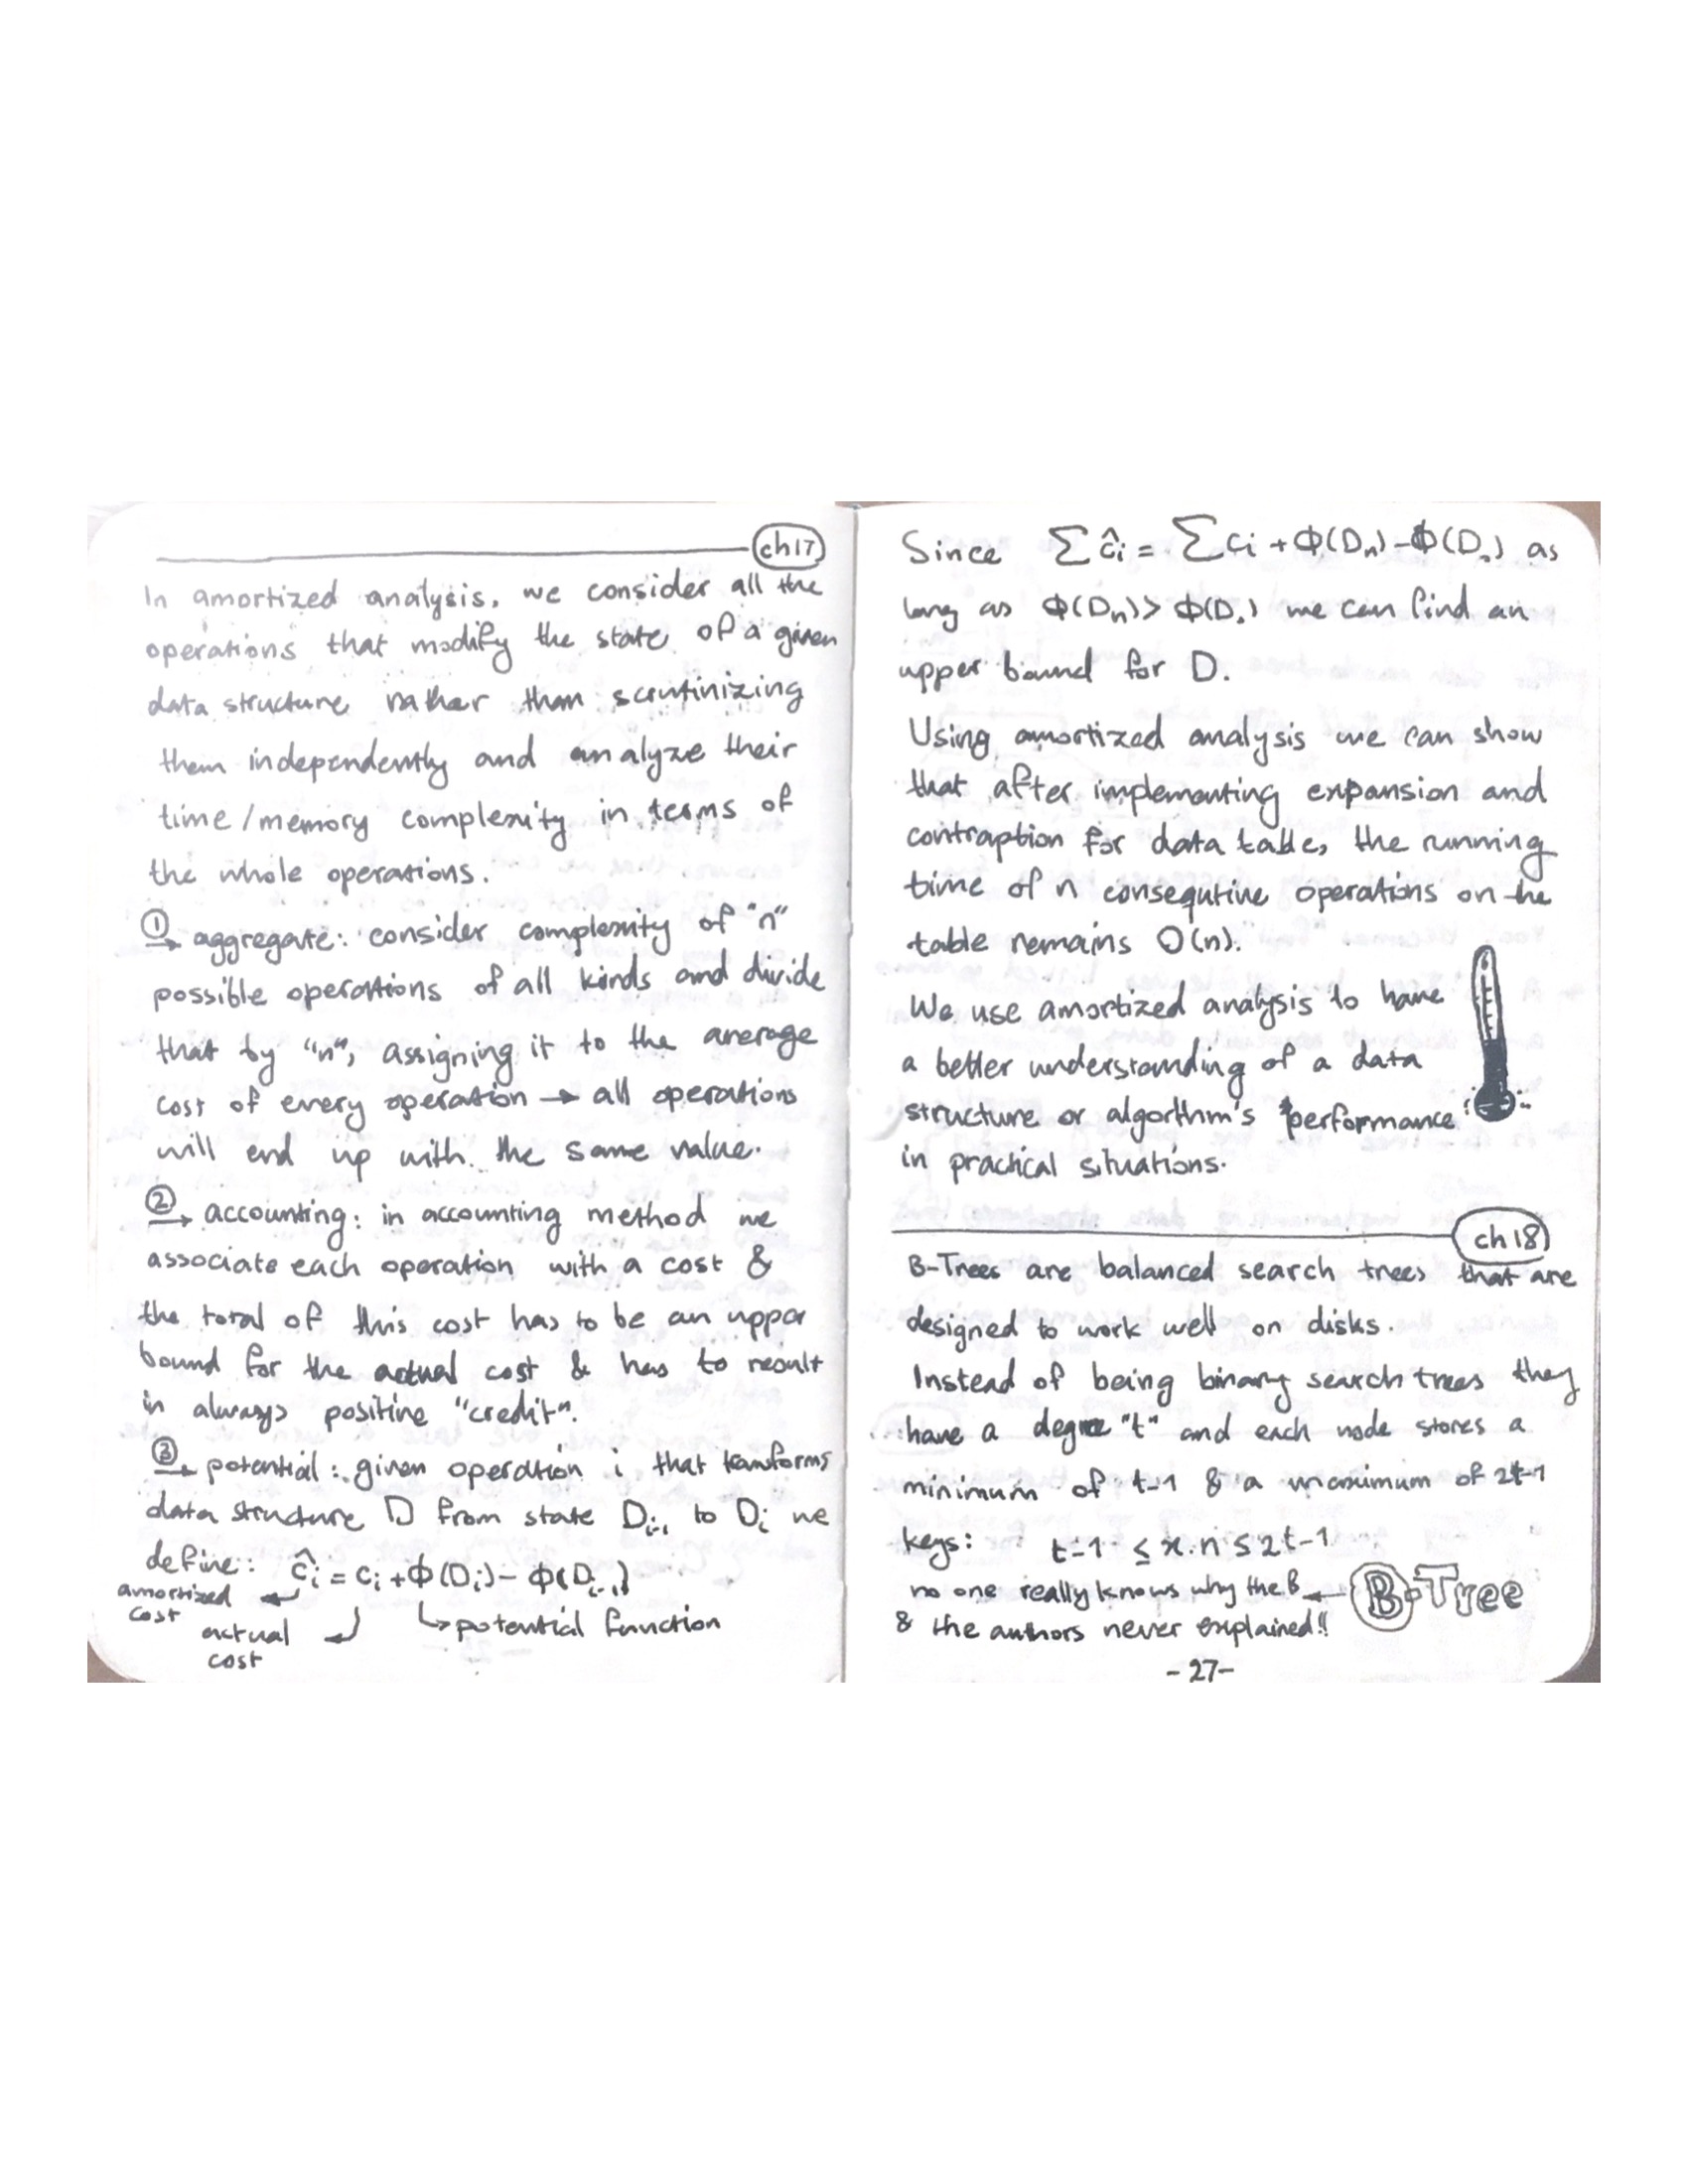 ch17
In amortized analysis, we consider all the
operations that modify the state of a given
data structure rather than scrutinizing
them independently and analyze their
time/memory complexity in terms of
the whole operations.
① → aggregate: consider complexity of "n"
possible operations of all kinds and divide
that by "n", assigning it to the average
cost of every operation → all operations
will end up with the same value.
② → accounting: in accounting method we
associate each operation with a cost &
the total of this cost has to be an upper
bound for the actual cost & has to result
in always positive "credit".
③ → potential: given operation i that transforms
data structure D from state Dᵢ₋₁ to Dᵢ we
define: ĉᵢ = cᵢ + Φ(Dᵢ) - Φ(Dᵢ₋₁)
amortized
cost
actual
cost
potential function
Since ∑ĉi = ∑ci + Φ(Dn) - Φ(D₀) as
long as Φ(Dn) > Φ(D₀) we can find an
upper bound for D.
Using amortized analysis we can show
that after implementing expansion and
contraption for data table, the running
time of n consequtive operations on the
table remains O(n).
We use amortized analysis to have
a better understanding of a data
structure or algorthm's performance
in practical situations.
ch18
B-Trees are balanced search trees that are
designed to work well on disks.
Instead of being binary search trees they
have a degree "t" and each node stores a
minimum of t-1 & a maximum of 2t-1
keys: t-1 ≤ x.n ≤ 2t-1
no one really knows why the B ← B-Tree
& the authors never explained!!
-27-